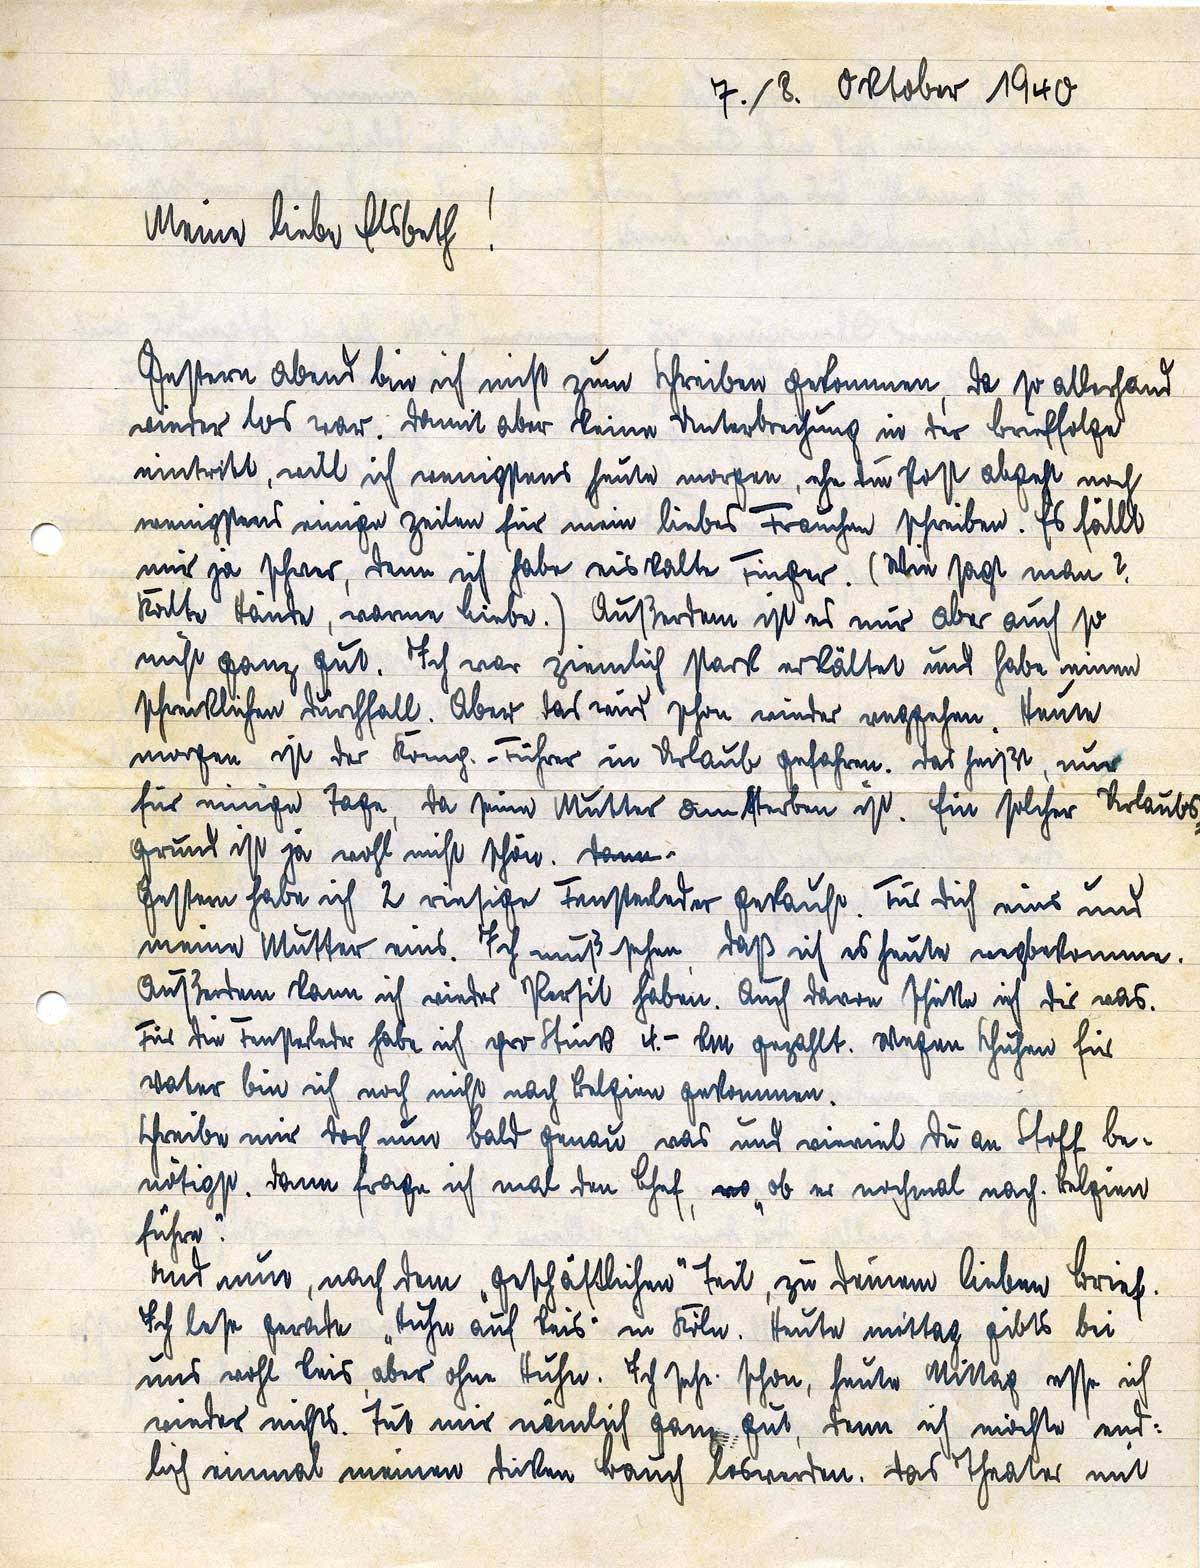 7./8. Oktober 1940
Meine liebe Elsbeth!
Gestern abend bin ich nicht zum Schreiben gekommen, da so allerhand
wieder los war. Damit aber keine Unterbrechung in der Brieffolge
eintritt, will ich wenigstens heute morgen, ehe die Post abgeht noch
wenigstens einige Zeilen für mein liebes Frauchen schreiben. Es fällt
mir ja schwer, denn ich habe eiskalte Finger. (Wie sagt man?
Kalte Hände, warme Liebe.) Außerdem ist es mir aber auch so
nicht ganz gut. Ich war ziemlich stark erkältet und habe einen
schrecklichen Durchfall. Aber das wird schon wieder weggehen. Heute
morgen ist der Komp.-Führer in Urlaub gefahren. Das heißt, nur
für einige Tage, da seine Mutter am Sterben ist. Ein solcher Urlaubs=
grund ist ja wohl nicht schön. Dann-
Gestern habe ich 2 riesige Fensterleder gekauft. Für Dich eins und
meine Mutter eins. Ich muß sehen, daß ich es heute wegbekomme.
Außerdem kann ich wieder Persil haben. Auch davon schicke ich dir was.
Für die Fensterleder habe ich pro Stück 4.- RM gezahlt. Wegen Schuhen für
Vater bin ich noch nicht nach Belgien gekommen.
Schreibe mir doch nun bald genau was und wieviel du an Stoff be-
nötigst. Dann frage ich mal den Chef, wo „ob er nochmal nach Belgien
führe".
Und nun, nach dem „geschäftlichen" Teil, zu Deinem lieben Brief.
Ich lese gerade „Huhn auf Reis" in Köln. Heute mittag gibts bei
uns wohl Reis, aber ohne Huhn. Ich sehe schon, heute Mittag esse ich
wieder nichts. Tut mir nämlich ganz gut, denn ich möchte end=
lich einmal meinen dicken Bauch loswerden. Das Theater mit